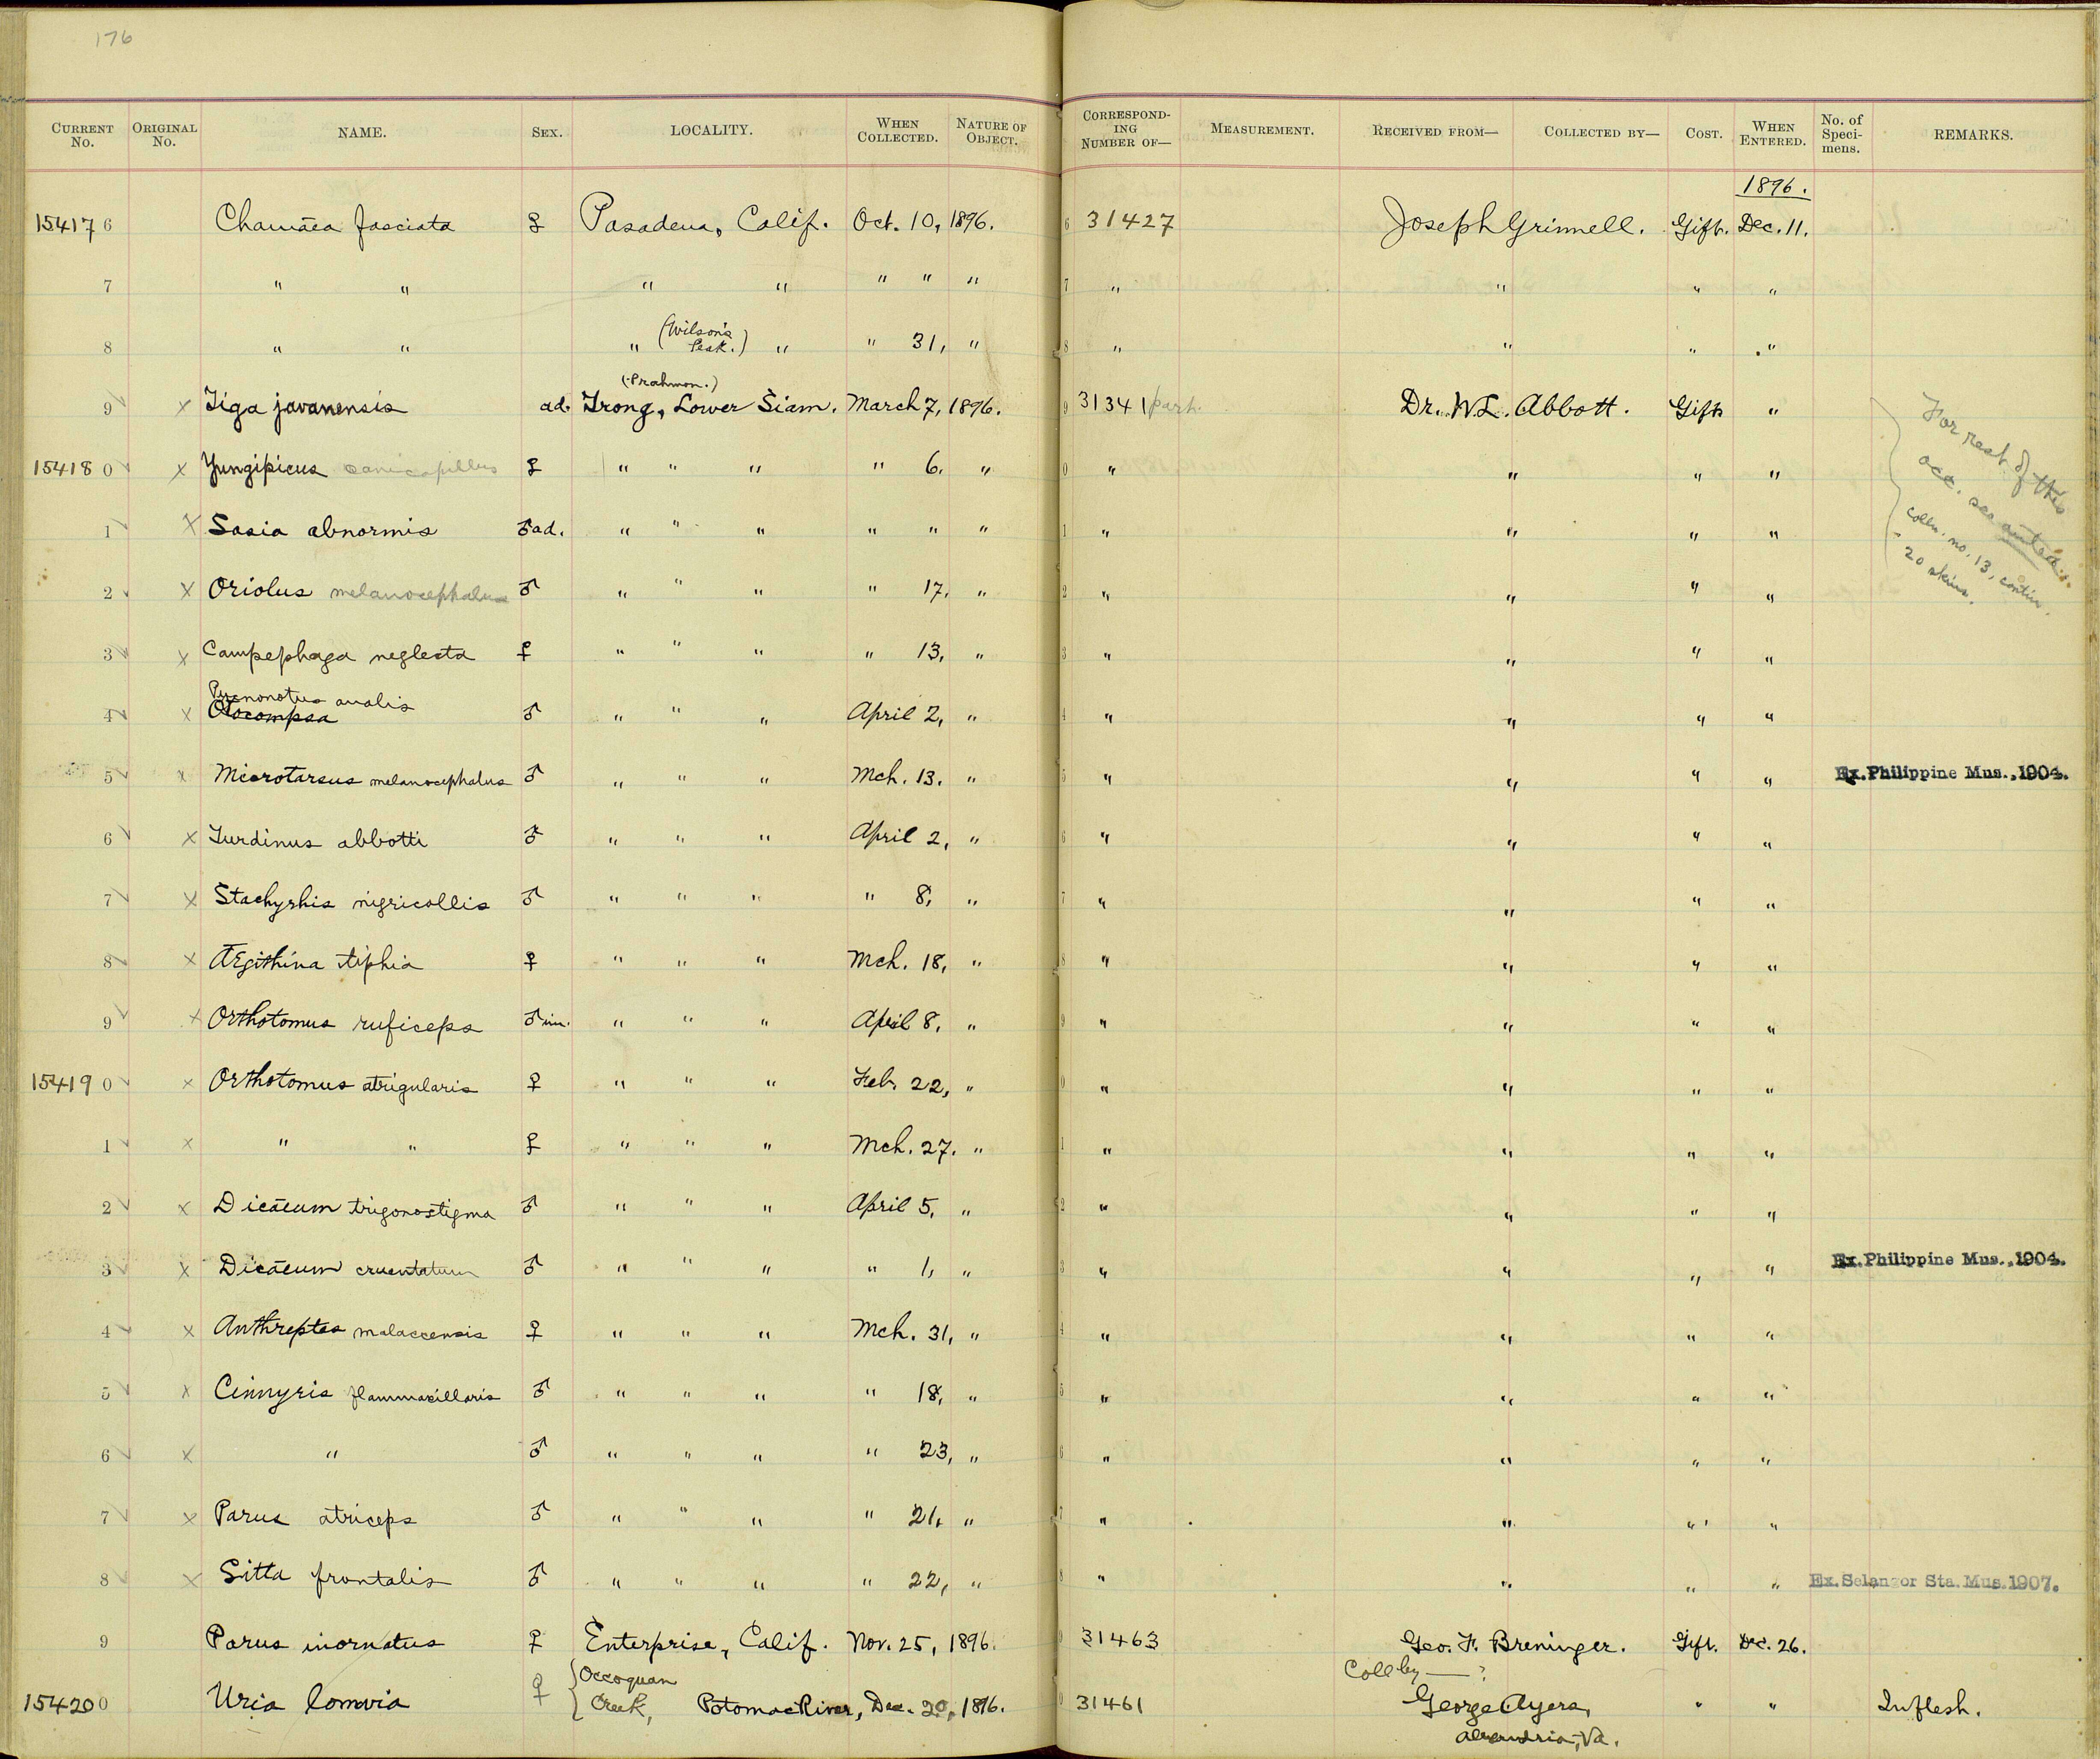 176
CURRENT No. ORIGINAL No. NAME. SEX. LOCALITY. WHEN COLLECTED. NATURE OF OBJECT. CORRESPOND-ING NUMBER OF— MEASUREMENT. RECEIVED FROM— COLLECTED BY— COST. WHEN ENTERED. No. of Speci-mens. REMARKS.
1896.
154176 Chamæa fasciata ♀ Pasadena, Calif. Oct. 10, 1896. 6 31427 Joseph Grinnell. Gift. Dec. 11.
7 " " " " " " " 7 " " " "
8 " " " (Wilson's Peak.) " " 31, " 8 " " " "
(Prahmon.)
9 x Tiga javanensis ad. Trong, Lower Siam. March 7, 1896. 9 31341 part. Dr. W. L. Abbott. Gift "
For rest of this acc. see antea. colln. no. 13, contin. 20 skins.
154180 x Yungipicus canicapillus ♀ " " " " 6. " 0 " " " "
1 x Sasia abnormis ♂ad. " " " " " " 1 " " " "
2 x Oriolus melanocephalus ♂ " " " " 17. " 2 " " " "
3 x Campephaga neglecta ♀ " " " " 13, " 3 " " " "
Pycnonotus analis
4 x Otocompsa ♂ " " " April 2, " 4 " " " "
5 x Microtarsus melanocephalus ♂ " " " Mch. 13. " 5 " " " " Ex. Philippine Mus., 1904.
6 x Turdinus abbotti ♂ " " " April 2, " 6 " " " "
7 x Stachyrhis nigricollis ♂ " " " " 8, " 7 " " " "
8 x Ægithina tiphia ♀ " " " Mch. 18, " 8 " " " "
9 x Orthotomus ruficeps ♂ im. " " " April 8, " 9 " " " "
154190 x Orthotomus atrigularis ♀ " " " Feb. 22, " 0 " " " "
1 x " " ♀ " " " Mch. 27. " 1 " " " "
2 x Dicæum trigonostigma ♂ " " " April 5, " 2 " " " "
3 x Dicæum cruentatum ♂ " " " " 1, " 3 " " " " Ex. Philippine Mus., 1904.
4 x Anthreptes malaccensis ♀ " " " Mch. 31, " 4 " " " "
5 x Cinnyris flammaxillaris ♂ " " " " 18, " 5 " " " "
6 x " ♂ " " " " 23, " 6 " " " "
7 x Parus atriceps ♂ " " " " 21, " 7 " " " "
8 x Sitta frontalis ♂ " " " " 22, " 8 " " " " Ex. Selangor Sta. Mus. 1907.
9 Parus inornatus ♀ Enterprise, Calif. Nov. 25, 1896. 9 31463 Geo. F. Breninger. Gift. Dec. 26.
Coll by — ?
154200 Uria lomvia ♀ {Occoquan Creek, Potomac River, Dec. 20, 1896. 0 31461 George Ayers, " " In flesh.
Alexandria, Va.